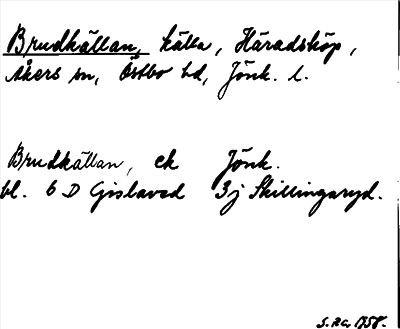 Brudkällan, källa, Häradsköp,
Åkers sn, Östbo hd, Jönk. l.
Brudkällan, ek Jönk.
bl. 6 D Gislaved 3j Skillingaryd.
S.RG. 1958.